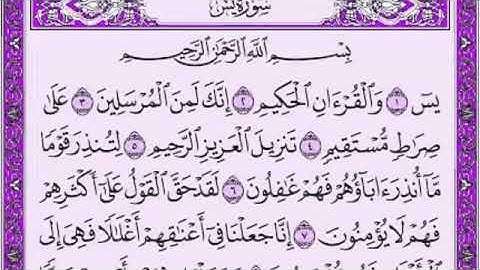 سورة يس
بسم الله الرحمن الرحيم
يسٓ ۝١ وَٱلْقُرْءَانِ ٱلْحَكِيمِ ۝٢ إِنَّكَ لَمِنَ ٱلْمُرْسَلِينَ ۝٣ عَلَىٰ
صِرَٰطٍ مُّسْتَقِيمٍ ۝٤ تَنزِيلَ ٱلْعَزِيزِ ٱلرَّحِيمِ ۝٥ لِتُنذِرَ قَوْمًا
مَّآ أُنذِرَ ءَابَآؤُهُمْ فَهُمْ غَٰفِلُونَ ۝٦ لَقَدْ حَقَّ ٱلْقَوْلُ عَلَىٰٓ أَكْثَرِهِمْ
فَهُمْ لَا يُؤْمِنُونَ ۝٧ إِنَّا جَعَلْنَا فِىٓ أَعْنَٰقِهِمْ أَغْلَٰلًا فَهِىَ إِلَى